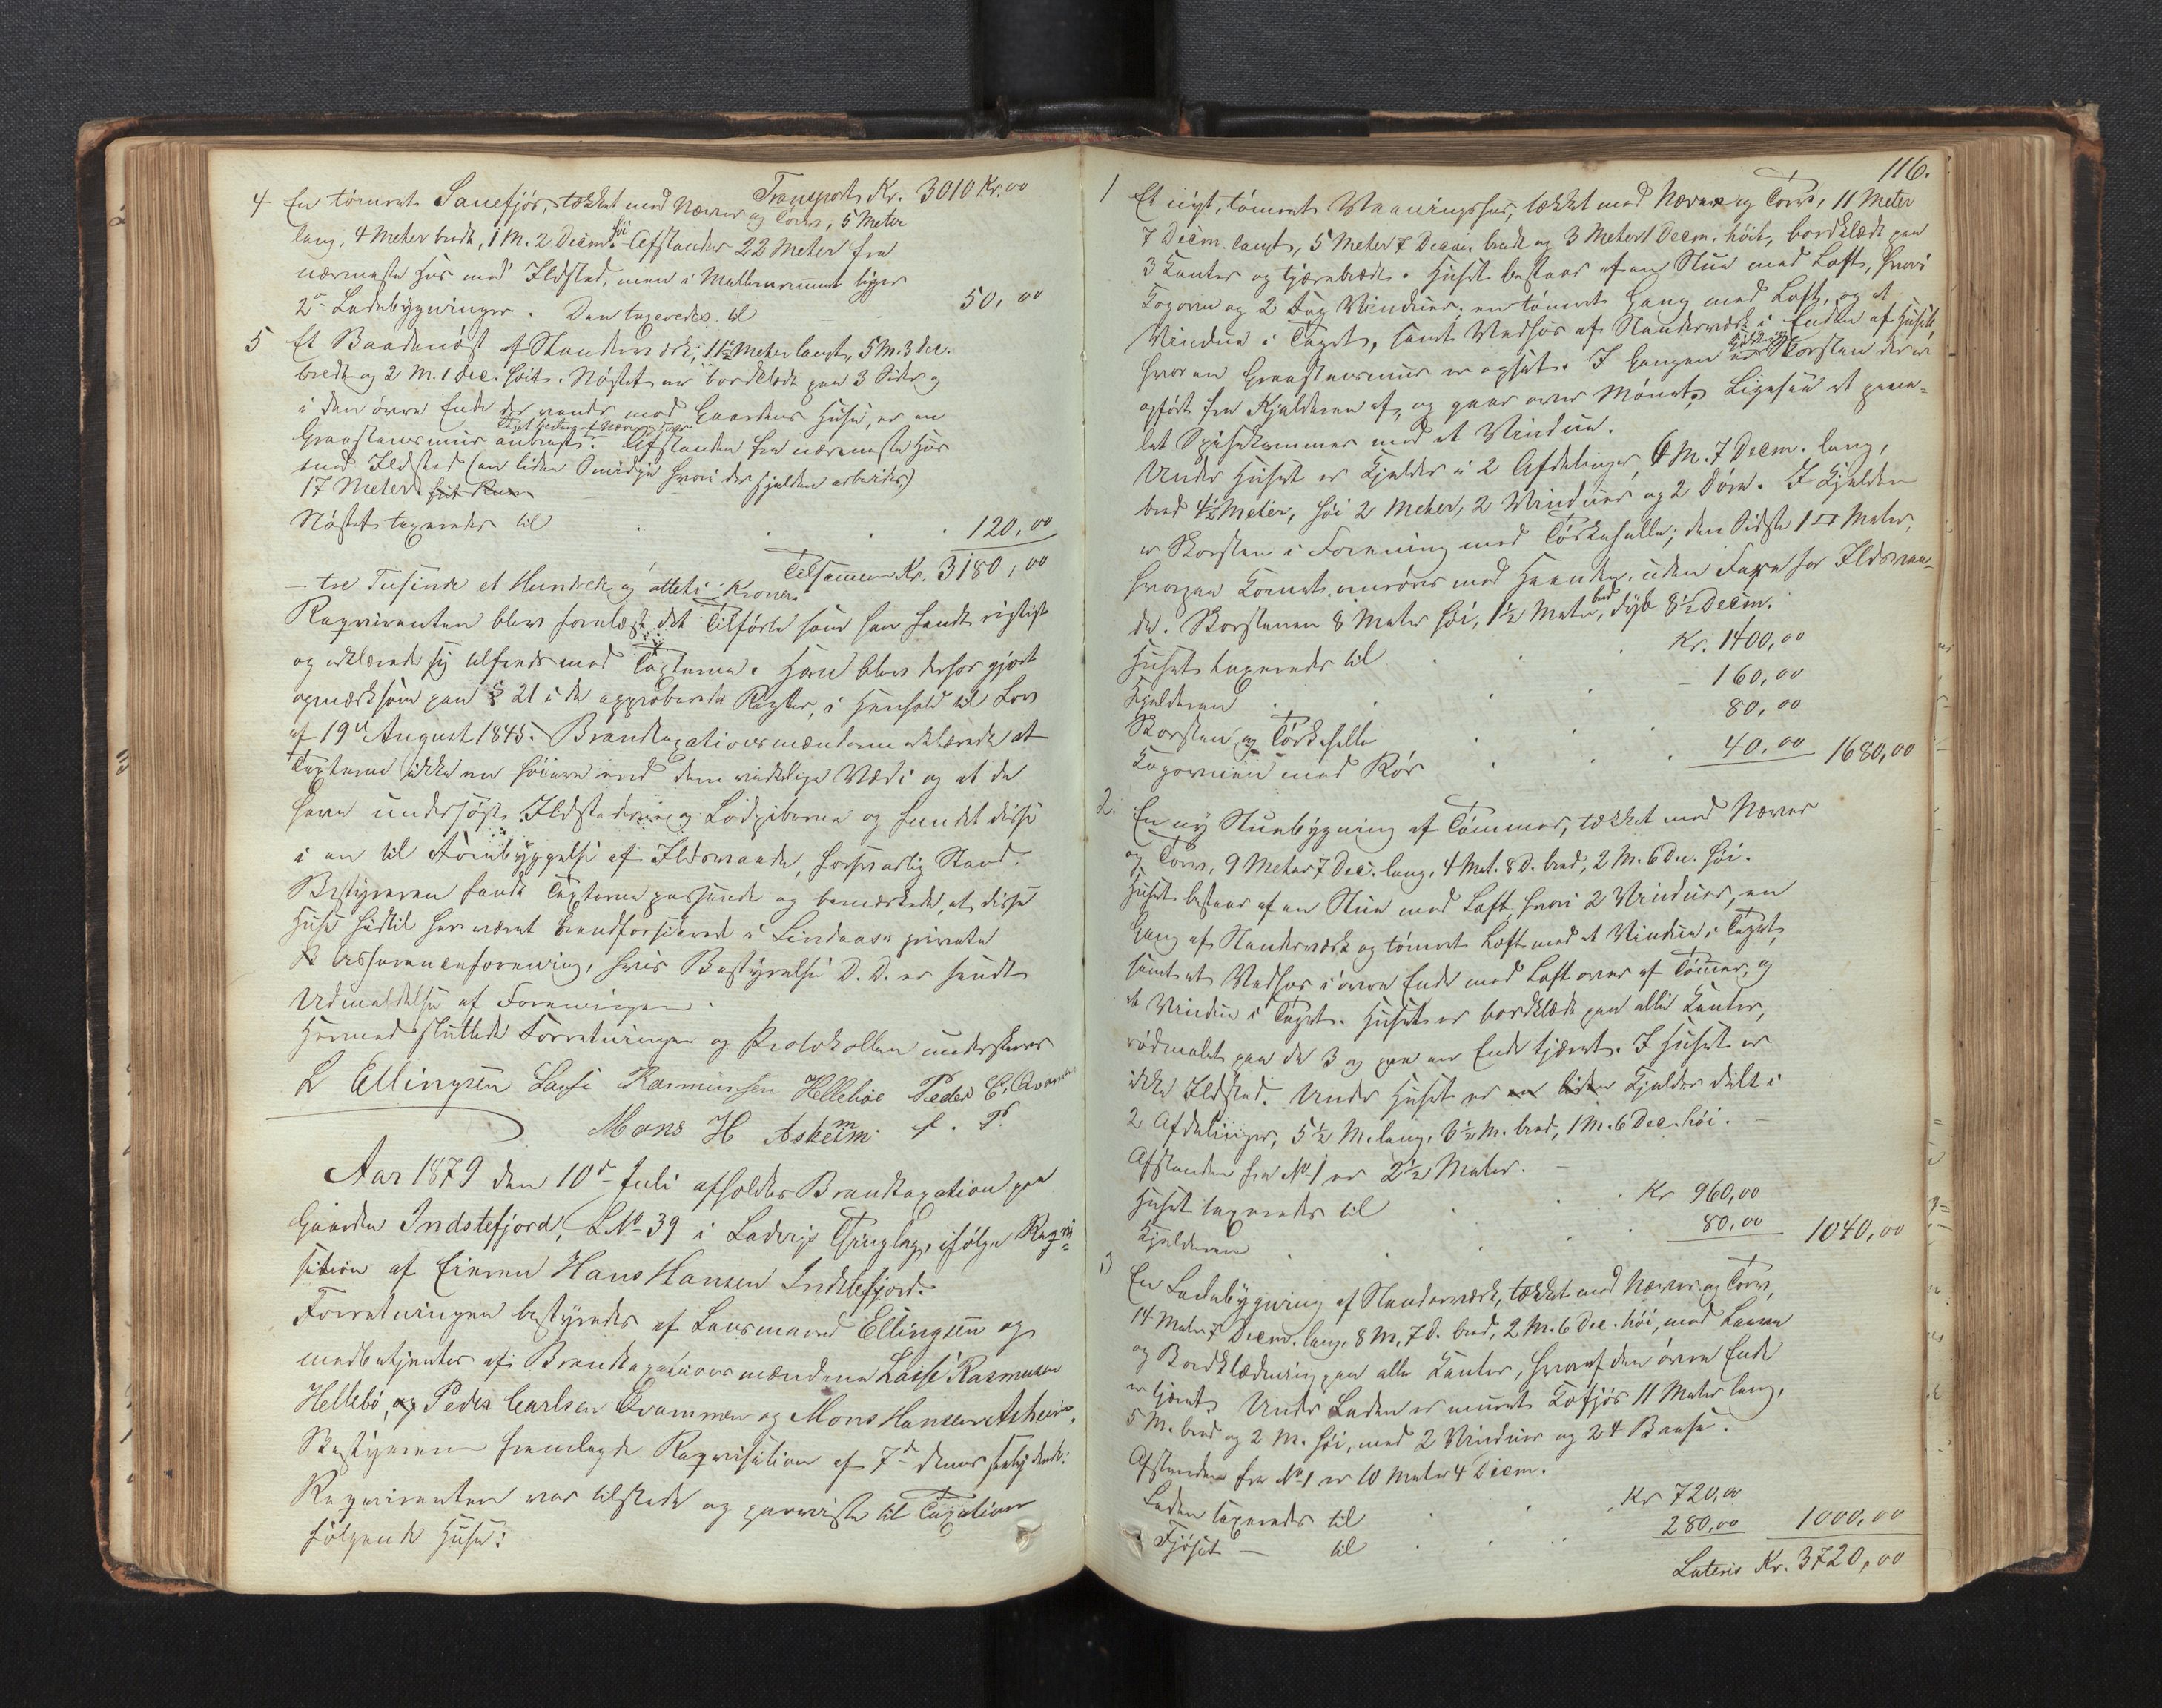 Transport Kr. 3010 Kr. 00
4 En tömret Sauefjös, tækket med Næver og Törv, 5 Meter
lang, 4 Meter bred, 1 M. 2 Decim. høi. Afstanden 22 Meter fra
nærmeste Hus med Ildsted, men i Mellemrummet ligger
2de Ladebygninger. Den taxeredes til 50,00
5 Et Baadenöst af Stenderværk, 11½ Meter langt, 5 M. 3 dec.
bredt og 2 M. 1 dec. høit. Nöstet er bordklædt paa 3 Sider og
i den övre Ende der vender mod Gaardens Huse, er en
Graastensmuur anbragt. Afstanden fra nærmeste Hus
Taget tækket af Næver og Törv
med Ildsted (en liden Smidje hvori der sjelden arbeides)
17 Meter.
Nöstet taxeredes til 120,00
Tilsammen Kr. 3180,00
– tre Tusinde et Hundrede og otteti Kroner.
Reqvirenten blev forelæst det Tilförte som han fandt rigtigt
og erklærede sig tilfreds med Taxterne. Han blev derfor gjort
opmærksom paa § 21 i de approberede Regler, i Henhold til Lov
af 19de August 1845. Brandtaxationsmændene erklærede at
Taxterne ikke er höiere end den virkelige Værdi og at de
have undersögt Ildstederne og Lodpiberne og fundet disse
i en til Forebyggelse af Ildsvaade, forsvarlig Stand.
Bestyreren fandt Taxterne passende og bemærkede, at disse
Huse hidtil har været brandforsikrede i Lindaas private
Assuranceforening, hvis Bestyrelse D. D. er sendt
Udmeldelse af Foreningen.
Hermed sluttede Forretningen og Protokollen underskreves
L Ellingsen Lasse Rasmussen Helleböe Peder C. Qvammen
Mons H Askeim m. f. P.
Aar 1879 den 10de Juli afholdtes Brandtaxation paa
Gaarden Indstefjord, LNo 39 i Ladvigs Thinglag, ifölge Reqvi=
sition af Eieren Hans Hansen Indstefjord.
Forretningen bestyredes af Lensmand Ellingsen og
medbetjentes af Brandtaxationsmændene Lasse Rasmusen
Hellebö, og Peder Carlsen Qvammen og Mons Hansen Askeim.
Bestyreren fremlagde Reqvisition af 7de dennes saalydende:
Reqvirenten var tilstede og paaviste til Taxation
fölgende Huse:
116.
1 Et nyt, tömret Vaaningshus, tækket med Næver og Törv, 11 Meter
7 Decim. langt, 5 Meter 7 Decim. bredt og 3 Meter 1 Decm. höit, bordklædt paa
3 Kanter og tjærebrædt. Huset bestaar af en Stue med Loft, hvori
Kogovn og 2 Fag Vinduer, en tömret Gang med Loft, og et
Vindue i Taget, samt Vedhus af Stenderværk i Enden af Huset,
hvor en Graastensmuur er opsat. I Gangen er Skorsten der er
opført fra Kjelderen af, og gaar over Mönet. Ligesaa et pane=
let Spisekammer med et Vindue.
Under Huset er Kjelder i 2 Afdelinger, 6 M. 7 Decm. lang,
bred 4½ Meter, høi 2 Meter, 2 Vinduer og 2 Döre. I Kjelderen
er Skorsten i Forening med Törkehelle; den Sidste 1 □ Meter,
hvorpaa Kornet omröres med Hænder, uden Fare for Ildsvaa=
de. Skorstenen 8 Meter høi, 1½ Meter bred, dyb 8½ Decim.
Huset taxeredes til Kr. 1400,00
Kjelderen – 160,00
Skorsten og Törkehelle 80,00
Kogovnen med Rör 40,00 1680,00
2. En ny Stuebygning af Tömmer, tækket med Næver
og Törv, 9 Meter 7 Dec. lang, 4 Met. 8 D. bred, 2 M. 6 Dec. høi.
Huset bestaar af en Stue med Loft, hvori 2 Vinduer, en
Gang af Stenderværk og tömret Loft med et Vindue i Taget,
samt et Vedhus i övre Ende med Loft over af Tömmer, og
et Vindue i Taget. Huset er bordklædt paa alle Kanter,
rödmalet paa de 3 og paa ene Ende tjæret. I Huset er
ikke Ildsted. Under Huset er en liden Kjelder delt i
2 Afdelinger, 5½ M. lang, 3½ M. bred, 1 M. 6 Dec. høi. –
Afstanden fra No 1 er 2½ Meter. –
Huset taxeredes til Kr 960,00
Kjelderen 80,00 1040,00
3 En Ladebygning af Stenderværk, tækket med Næver og Törv,
14 Meter 7 Decm. lang, 8 M. 7 d. bred, 2 M. 6 Dec. høi, med Laave
og Bordklædning paa alle Kanter, hvoraf den övre Ende
er tjæret. Under Laden er muret Kofjös 11 Meter lang,
5 M. bred og 2 M. høi, med 2 Vinduer og 24 Baase.
Afstanden fra No 1 er 10 Meter 4 Decm.
Laden taxeredes til Kr 720,00
Fjöset – til 280,00 1000,00
Lateris Kr. 3720,00